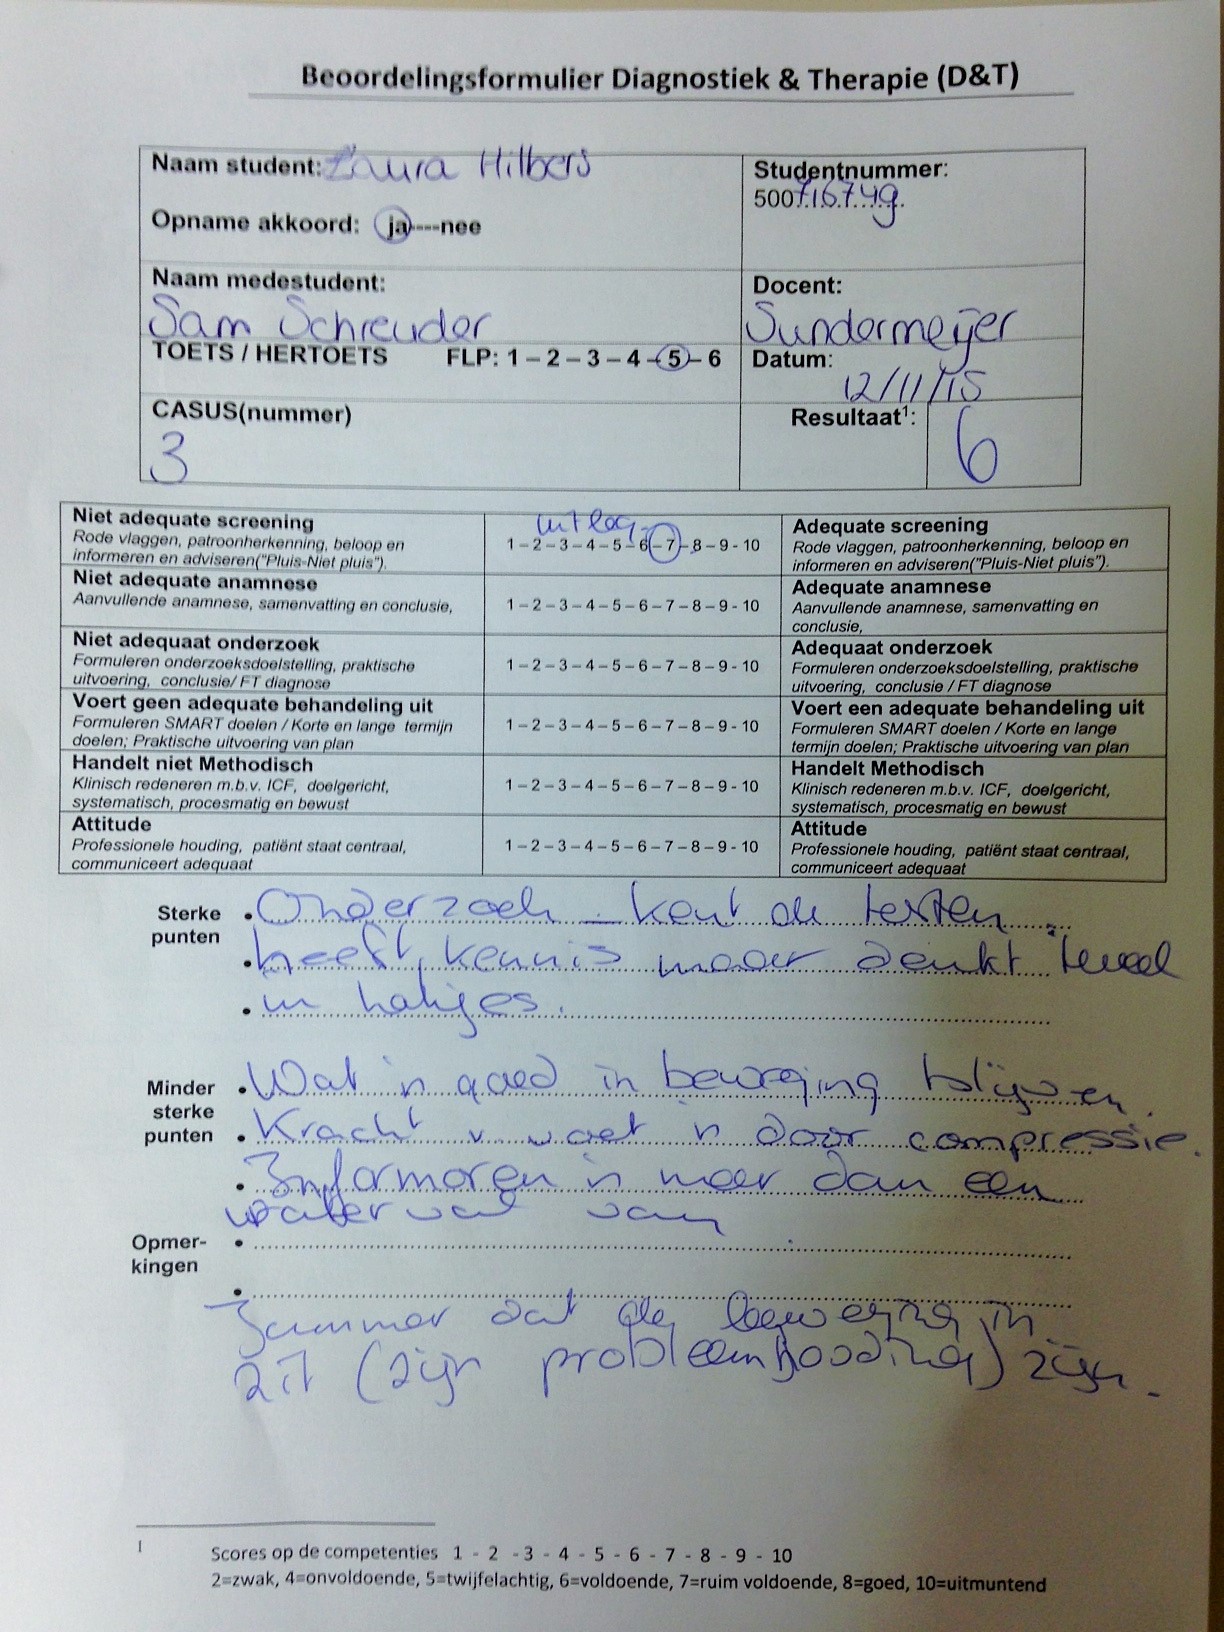 Beoordelingsformulier Diagnostiek & Therapie (D&T)
Naam student: Laura Hilbers
Studentnummer:
500716749
Opname akkoord: ja----nee
Naam medestudent:
Sam Schreuder
Docent:
Sundermeijer
TOETS / HERTOETS FLP: 1 – 2 – 3 – 4 – 5 – 6
Datum:
12/11/15
CASUS(nummer)
3
Resultaat1:
6
Niet adequate screening
Rode vlaggen, patroonherkenning, beloop en
informeren en adviseren("Pluis-Niet pluis").
uitleg
1 – 2 – 3 – 4 – 5 – 6 – 7 – 8 – 9 - 10
Adequate screening
Rode vlaggen, patroonherkenning, beloop en
informeren en adviseren("Pluis-Niet pluis").
Niet adequate anamnese
Aanvullende anamnese, samenvatting en conclusie,
1 – 2 – 3 – 4 – 5 – 6 – 7 – 8 – 9 - 10
Adequate anamnese
Aanvullende anamnese, samenvatting en
conclusie,
Niet adequaat onderzoek
Formuleren onderzoeksdoelstelling, praktische
uitvoering, conclusie/ FT diagnose
1 – 2 – 3 – 4 – 5 – 6 – 7 – 8 – 9 - 10
Adequaat onderzoek
Formuleren onderzoeksdoelstelling, praktische
uitvoering, conclusie / FT diagnose
Voert geen adequate behandeling uit
Formuleren SMART doelen / Korte en lange termijn
doelen; Praktische uitvoering van plan
1 – 2 – 3 – 4 – 5 – 6 – 7 – 8 – 9 - 10
Voert een adequate behandeling uit
Formuleren SMART doelen / Korte en lange
termijn doelen; Praktische uitvoering van plan
Handelt niet Methodisch
Klinisch redeneren m.b.v. ICF, doelgericht,
systematisch, procesmatig en bewust
1 – 2 – 3 – 4 – 5 – 6 – 7 – 8 – 9 - 10
Handelt Methodisch
Klinisch redeneren m.b.v. ICF, doelgericht,
systematisch, procesmatig en bewust
Attitude
Professionele houding, patiënt staat centraal,
communiceert adequaat
1 – 2 – 3 – 4 – 5 – 6 – 7 – 8 – 9 - 10
Attitude
Professionele houding, patiënt staat centraal,
communiceert adequaat
Sterke punten
• Onderzoek – kent de testen.
• heeft kennis maar denkt teveel
• in hokjes.
Minder sterke punten
• Wat is goed in beweging blijven.
• Kracht v voet is door compressie.
• Informeren is meer dan een
waterval van
Opmer-
kingen
•
•
Jammer dat de in
zit (zijn probleemhouding) zijn.
1 Scores op de competenties 1 - 2 - 3 - 4 - 5 - 6 - 7 - 8 - 9 - 10
2=zwak, 4=onvoldoende, 5=twijfelachtig, 6=voldoende, 7=ruim voldoende, 8=goed, 10=uitmuntend